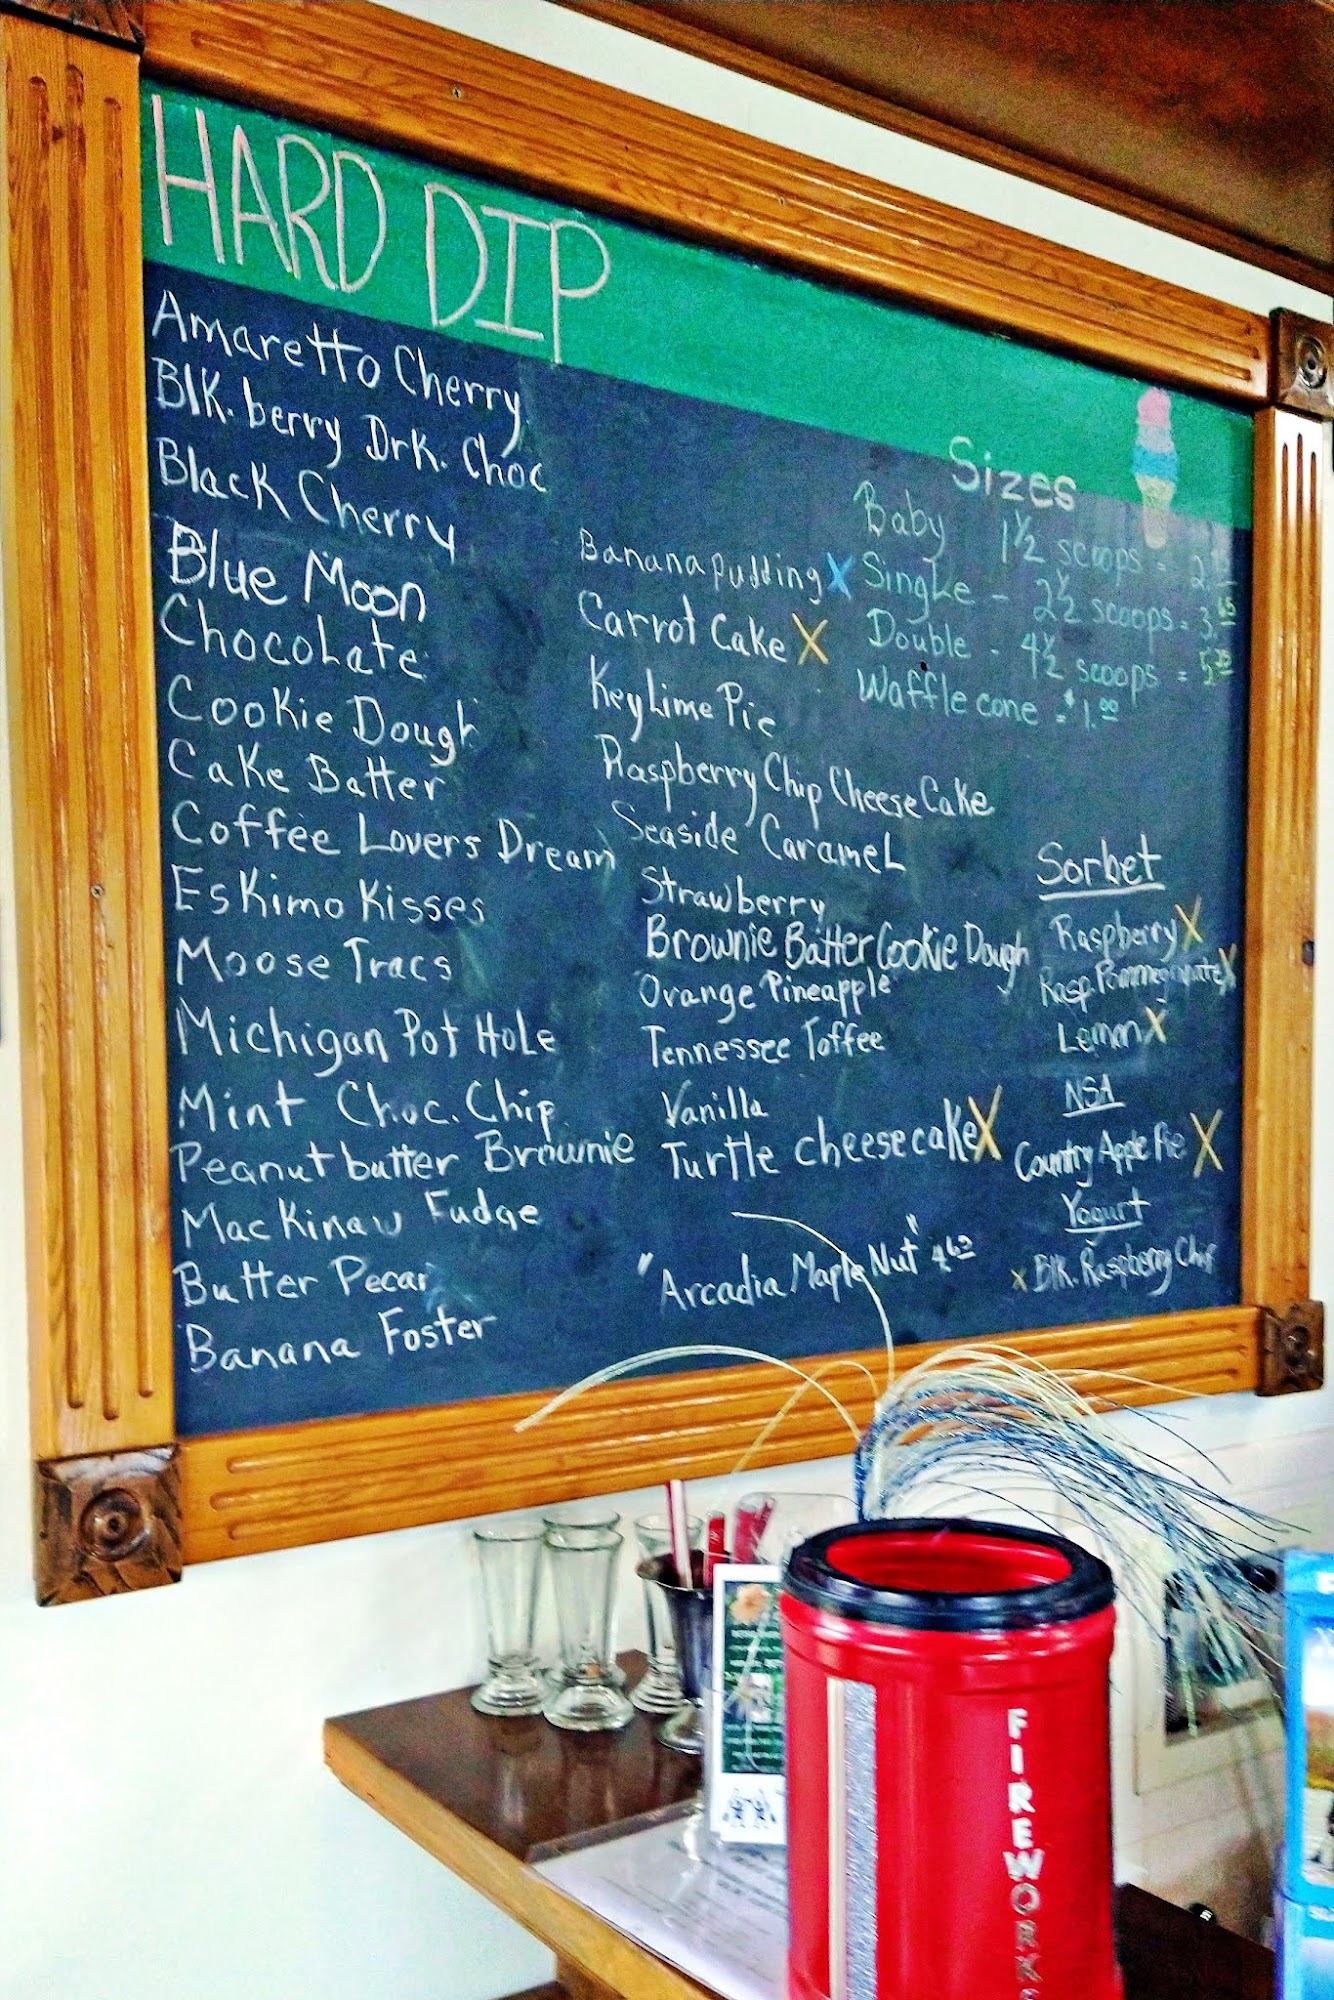 HARD DIP
Amaretto Cherry
Blk. berry Drk. Choc
Black Cherry
Blue Moon
Chocolate
Cookie Dough
Cake Batter
Coffee Lovers Dream
Eskimo Kisses
Moose Tracs
Michigan Pot Hole
Mint Choc. Chip
Peanutbutter Brownie
Mackinaw Fudge
Butter Pecan
Banana Foster
Banana Pudding X
Carrot Cake X
Key Lime Pie
Raspberry Chip Cheese Cake
Seaside Caramel
Strawberry
Brownie Batter Cookie Dough
Orange Pineapple
Tennessee Toffee
Vanilla
Turtle cheesecake X
"Arcadia Maple Nut"
Sizes
Baby 1½ scoops = 2.
Single - 2½ scoops = 3.
Double - 4½ scoops = 5.
Waffle cone = $1.00
Sorbet
Raspberry X
Rasp. Pommegranate X
Lemon X
NSA
Country Apple Pie X
Yogurt
x Blk. Raspberry Chip
FIREWORKS